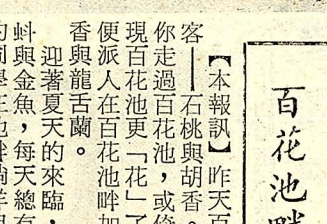 百花池畔
【本報訊】昨天百
客——石桃與胡香
你走過百花池，或倚
現百花池更「花」了
便派人在百花池畔加
香與龍舌蘭。
迎著夏天的來臨，
蚪與金魚，每天總有